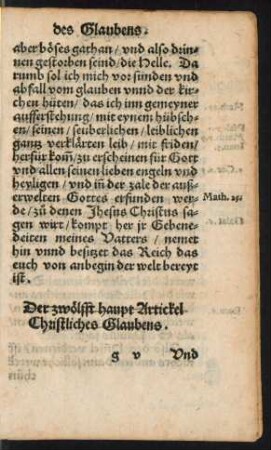 des Glaubens.
aber böses gathan / vnd also drin-
nen gestorben seind / die Helle. Da
rumb sol ich mich vor sünden vnd
abfall vom glauben vnnd der kir-
chen hüten / das ich inn gemeyner
aufferstehung / mit eynem hübsch-
en / seinen / seuberlichen / leiblichen
gantz verklärten leib / mit friden /
herfür kom̃ / zu erscheinen für Gott
vnd allen seinen lieben engeln vnd
heyligen / vnd in̄ der zale der auß-
erwelten Gottes erfunden wer-
de / zu denen Jhesus Christus sa-
gen wirt / kompt her jr Gebene-
deiten meines Vatters / nemet
hin vnnd besitzet das Reich das
euch von anbegin der welt bereyt
ist.
Math. 25.
Der zwölfft haupt Artickel
Christliches Glaubens.
g v Vnd